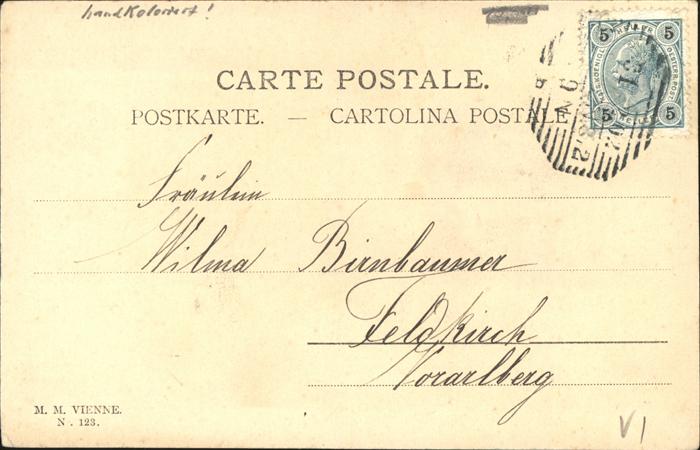 handkoloriert!
CARTE POSTALE.
POSTKARTE. — CARTOLINA POSTALE
Fräulein
Wilma Birnbaumer
Feldkirch
Vorarlberg
M. M. VIENNE.
N. 123.
VI
5 5
5 5